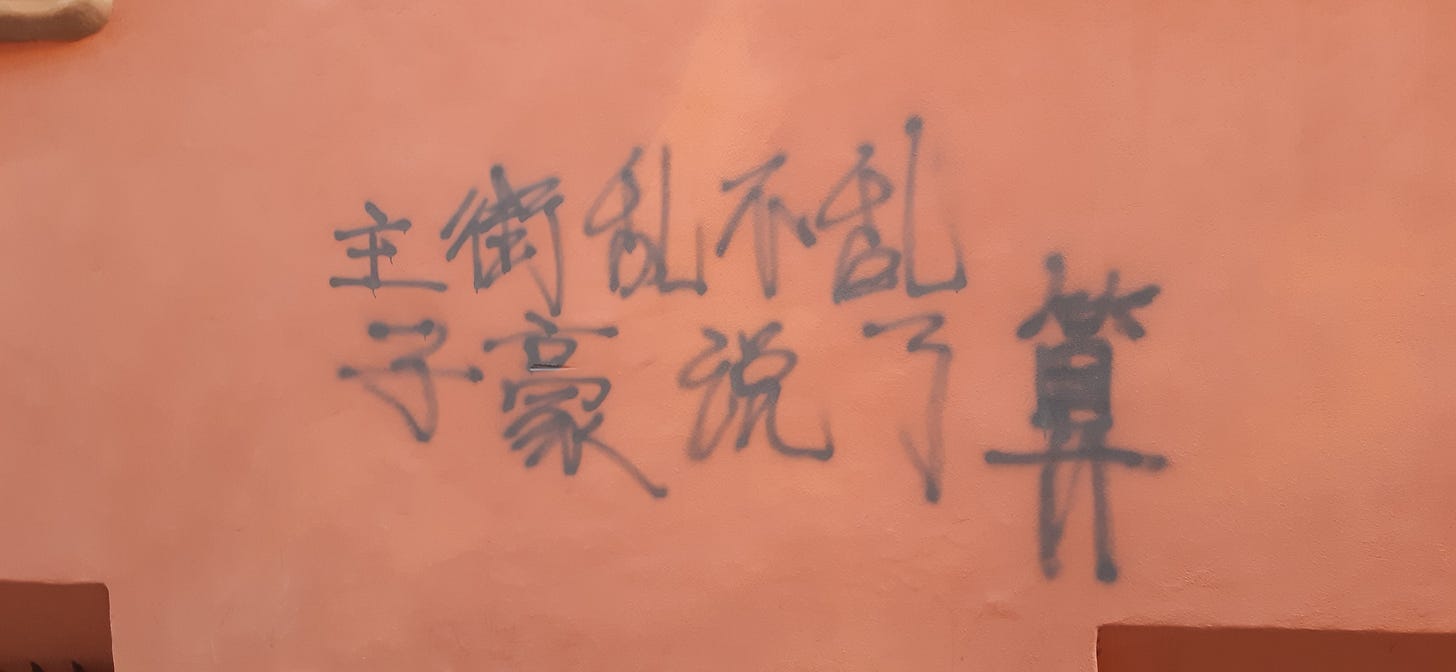 主街乱不乱
子豪说了算